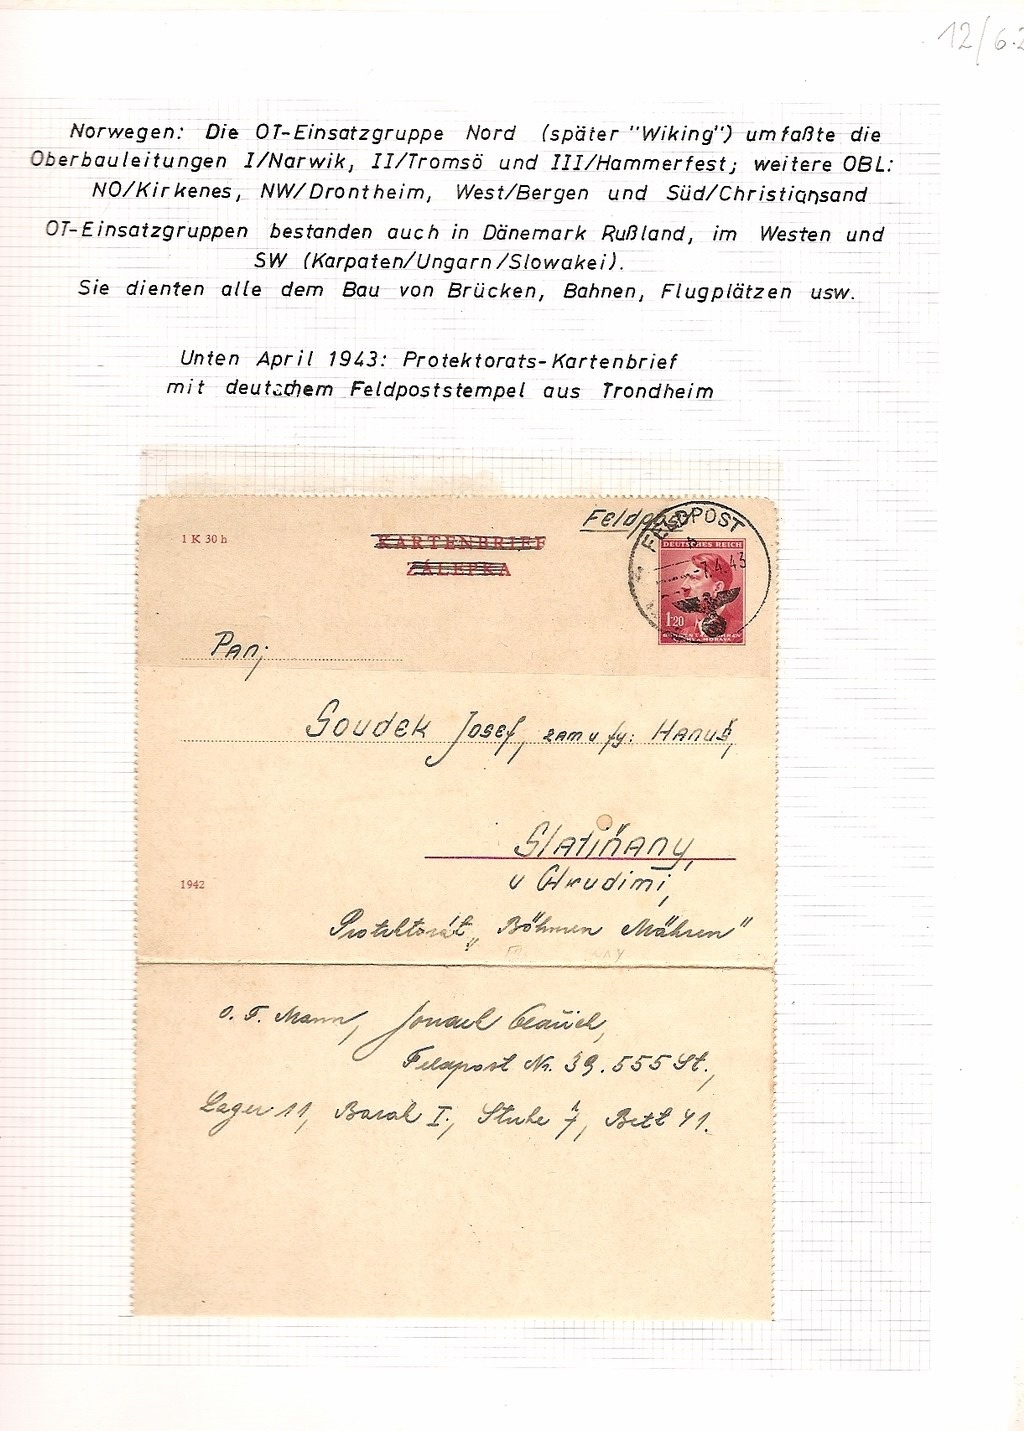 12/6.2
Norwegen: Die OT-Einsatzgruppe Nord (später "Wiking") umfaßte die
Oberbauleitungen I/Narwik, II/Tromsö und III/Hammerfest; weitere OBL:
NO/Kirkenes, NW/Drontheim, West/Bergen und Süd/Christiansand
OT-Einsatzgruppen bestanden auch in Dänemark Rußland, im Westen und
SW (Karpaten/Ungarn/Slowakei).
Sie dienten alle dem Bau von Brücken, Bahnen, Flugplätzen usw.
Unten April 1943: Protektorats-Kartenbrief
mit deutschem Feldpoststempel aus Trondheim
Feldpost
FELDPOST
1 K 30 h
KARTENBRIEF
ZÁLEPKA
DEUTSCHES REICH
-7.4.43
1.20
Pan;
Soudek Josef, zam u fy: Hanuš,
Slatiňany,
u Chrudimi,
1942
Protektorát „Böhmen Mähren"
O. T. Mann,
Feldpost Nr. 39.555 St.,
Lager 11, Barak I., Stube 7, Bett 41.